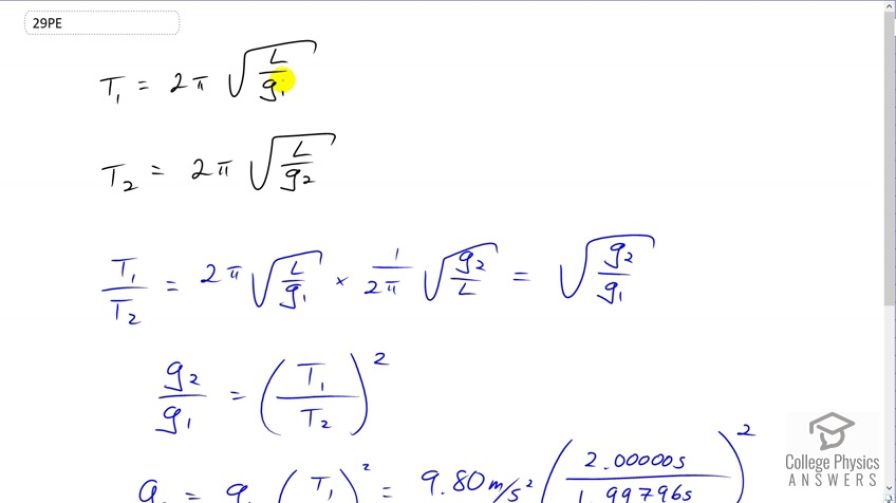 29PE
T₁ = 2π √(L/g₁)
T₂ = 2π √(L/g₂)
T₁/T₂ = 2π √(L/g₁) × 1/(2π) √(g₂/L) = √(g₂/g₁)
g₂/g₁ = (T₁/T₂)²
= (T₁ )² = 9.80 m/s² (2.00000s/1.99796s)²
College Physics
ANSWERS